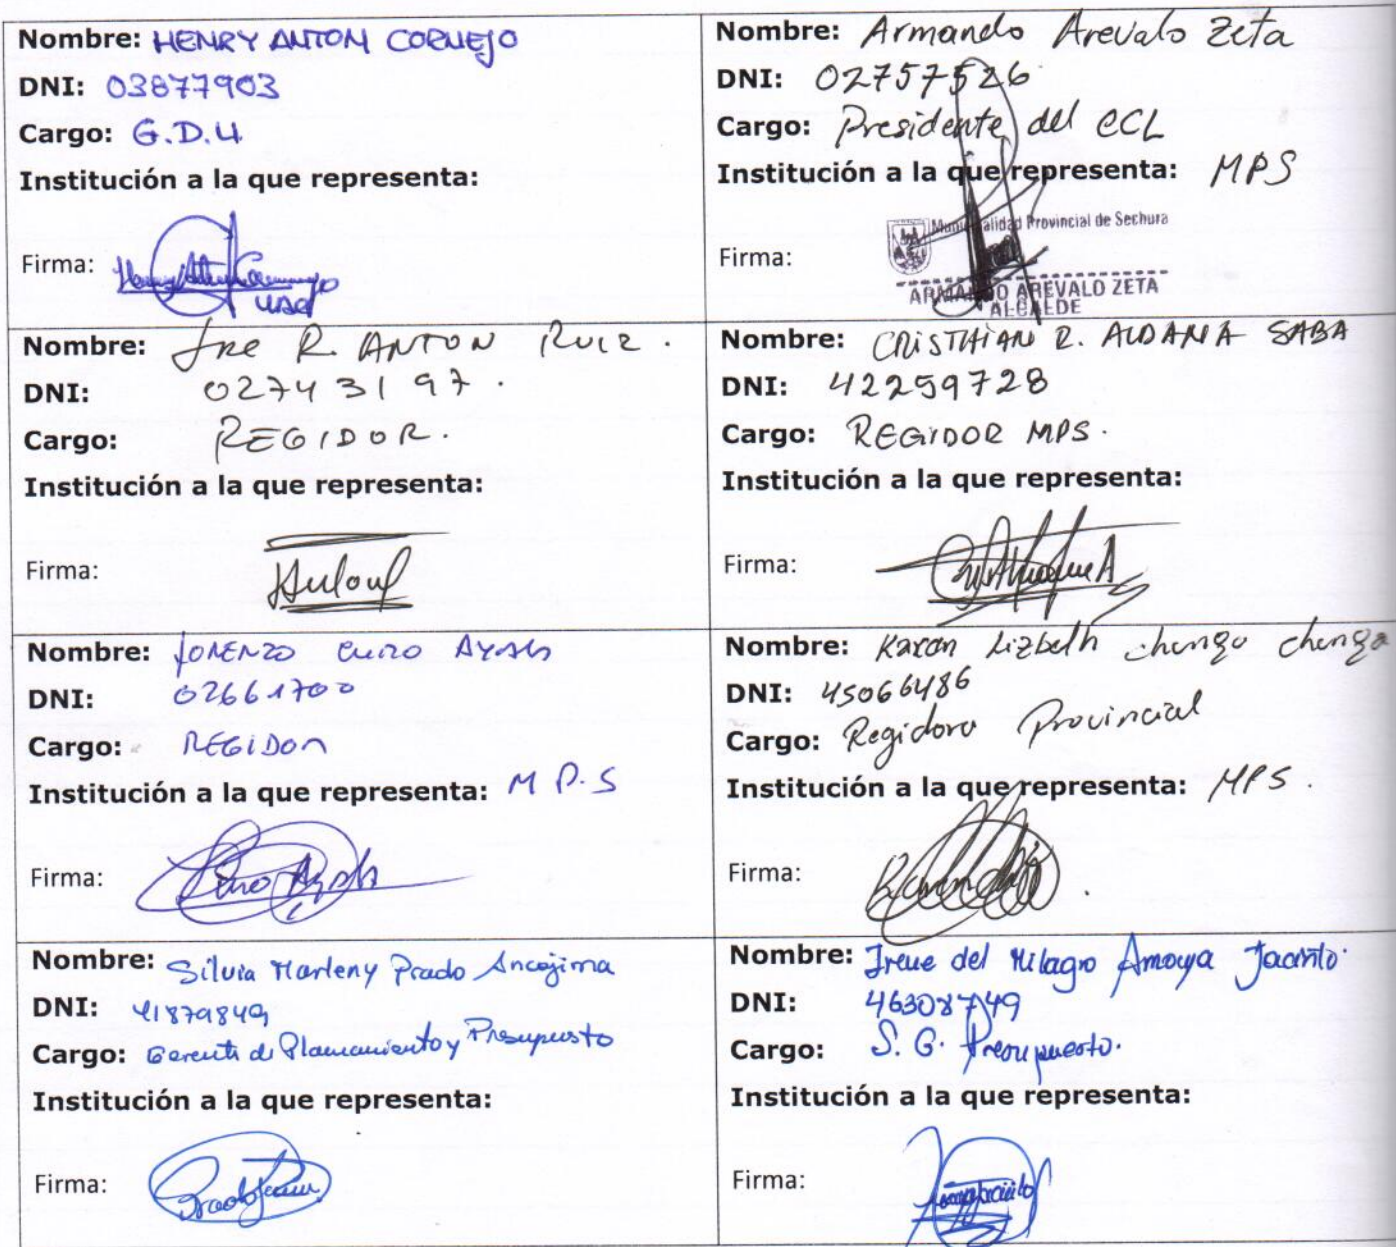 Nombre: HENRY ANTON CORNEJO
DNI: 03877903
Cargo: G.D.U
Institución a la que representa:
Firma:
Nombre: Armando Arevalo Zeta
DNI: 02757526
Cargo: Presidente del CCL
Institución a la que representa: MPS
Municipalidad Provincial de Sechura
Firma:
ARMANDO AREVALO ZETA
ALCALDE
Nombre: R. ANTON RUIZ.
DNI: 02743197.
Cargo: REGIDOR.
Institución a la que representa:
Firma:
Nombre: CRISTHIAN R. ALDANA SABA
DNI: 42259728
Cargo: REGIDOR MPS.
Institución a la que representa:
Firma:
Nombre: LORENZO AYALA
DNI: 02661700
Cargo: REGIDOR
Institución a la que representa: M P.S
Firma:
Nombre: Karen Lizbeth chunga chunga
DNI: 45066486
Cargo: Regidora Provincial
Institución a la que representa: MPS.
Firma:
Nombre: Silvia Marleny Prado Ancajima
DNI: 41879849
Cargo: Gerente de Planeamiento y Presupuesto
Institución a la que representa:
Firma:
Nombre: Irene del Milagro Amaya Jacinto.
DNI: 46308749
Cargo: S. G. Presupuesto.
Institución a la que representa:
Firma: